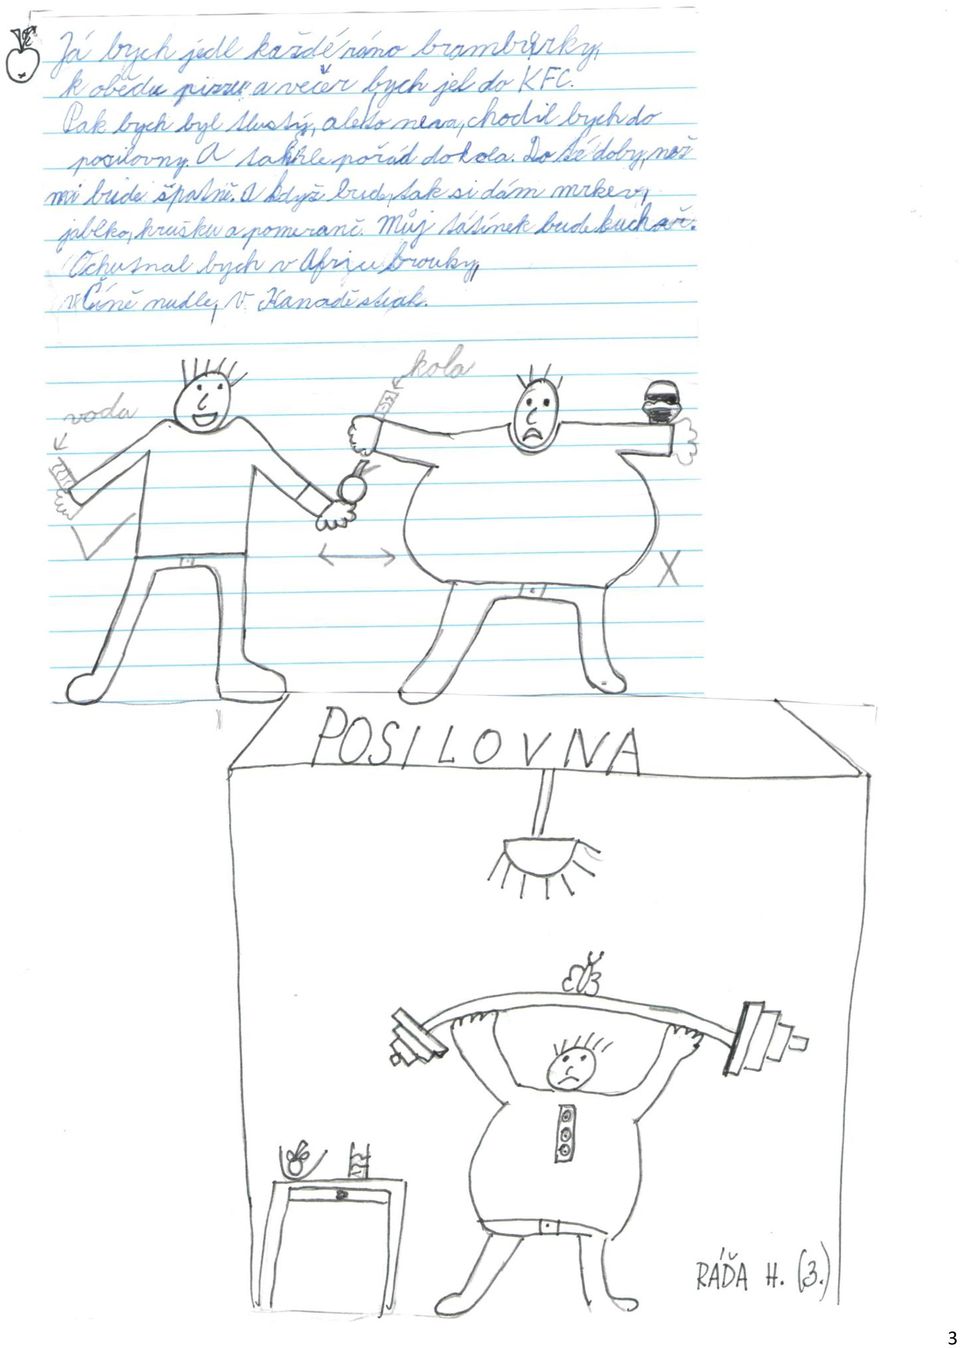 Já bych jedl každé ráno brambůrky,
k obědu pizzu a večer bych jel do KFC.
Pak bych byl tlustý, ale to neva, chodil bych do
posilovny. A takhle pořád dokola. Do té doby, než
mi bude špatně. A když bude, tak si dám mrkev,
jablko, hrušku a pomeranč. Můj tátínek bude kuchař.
Ochutnal bych v Africe brouky,
v Číně nudle, v Kanadě steak.
kola
voda
X
POSILOVNA
RÁĎA H. (3.)
3